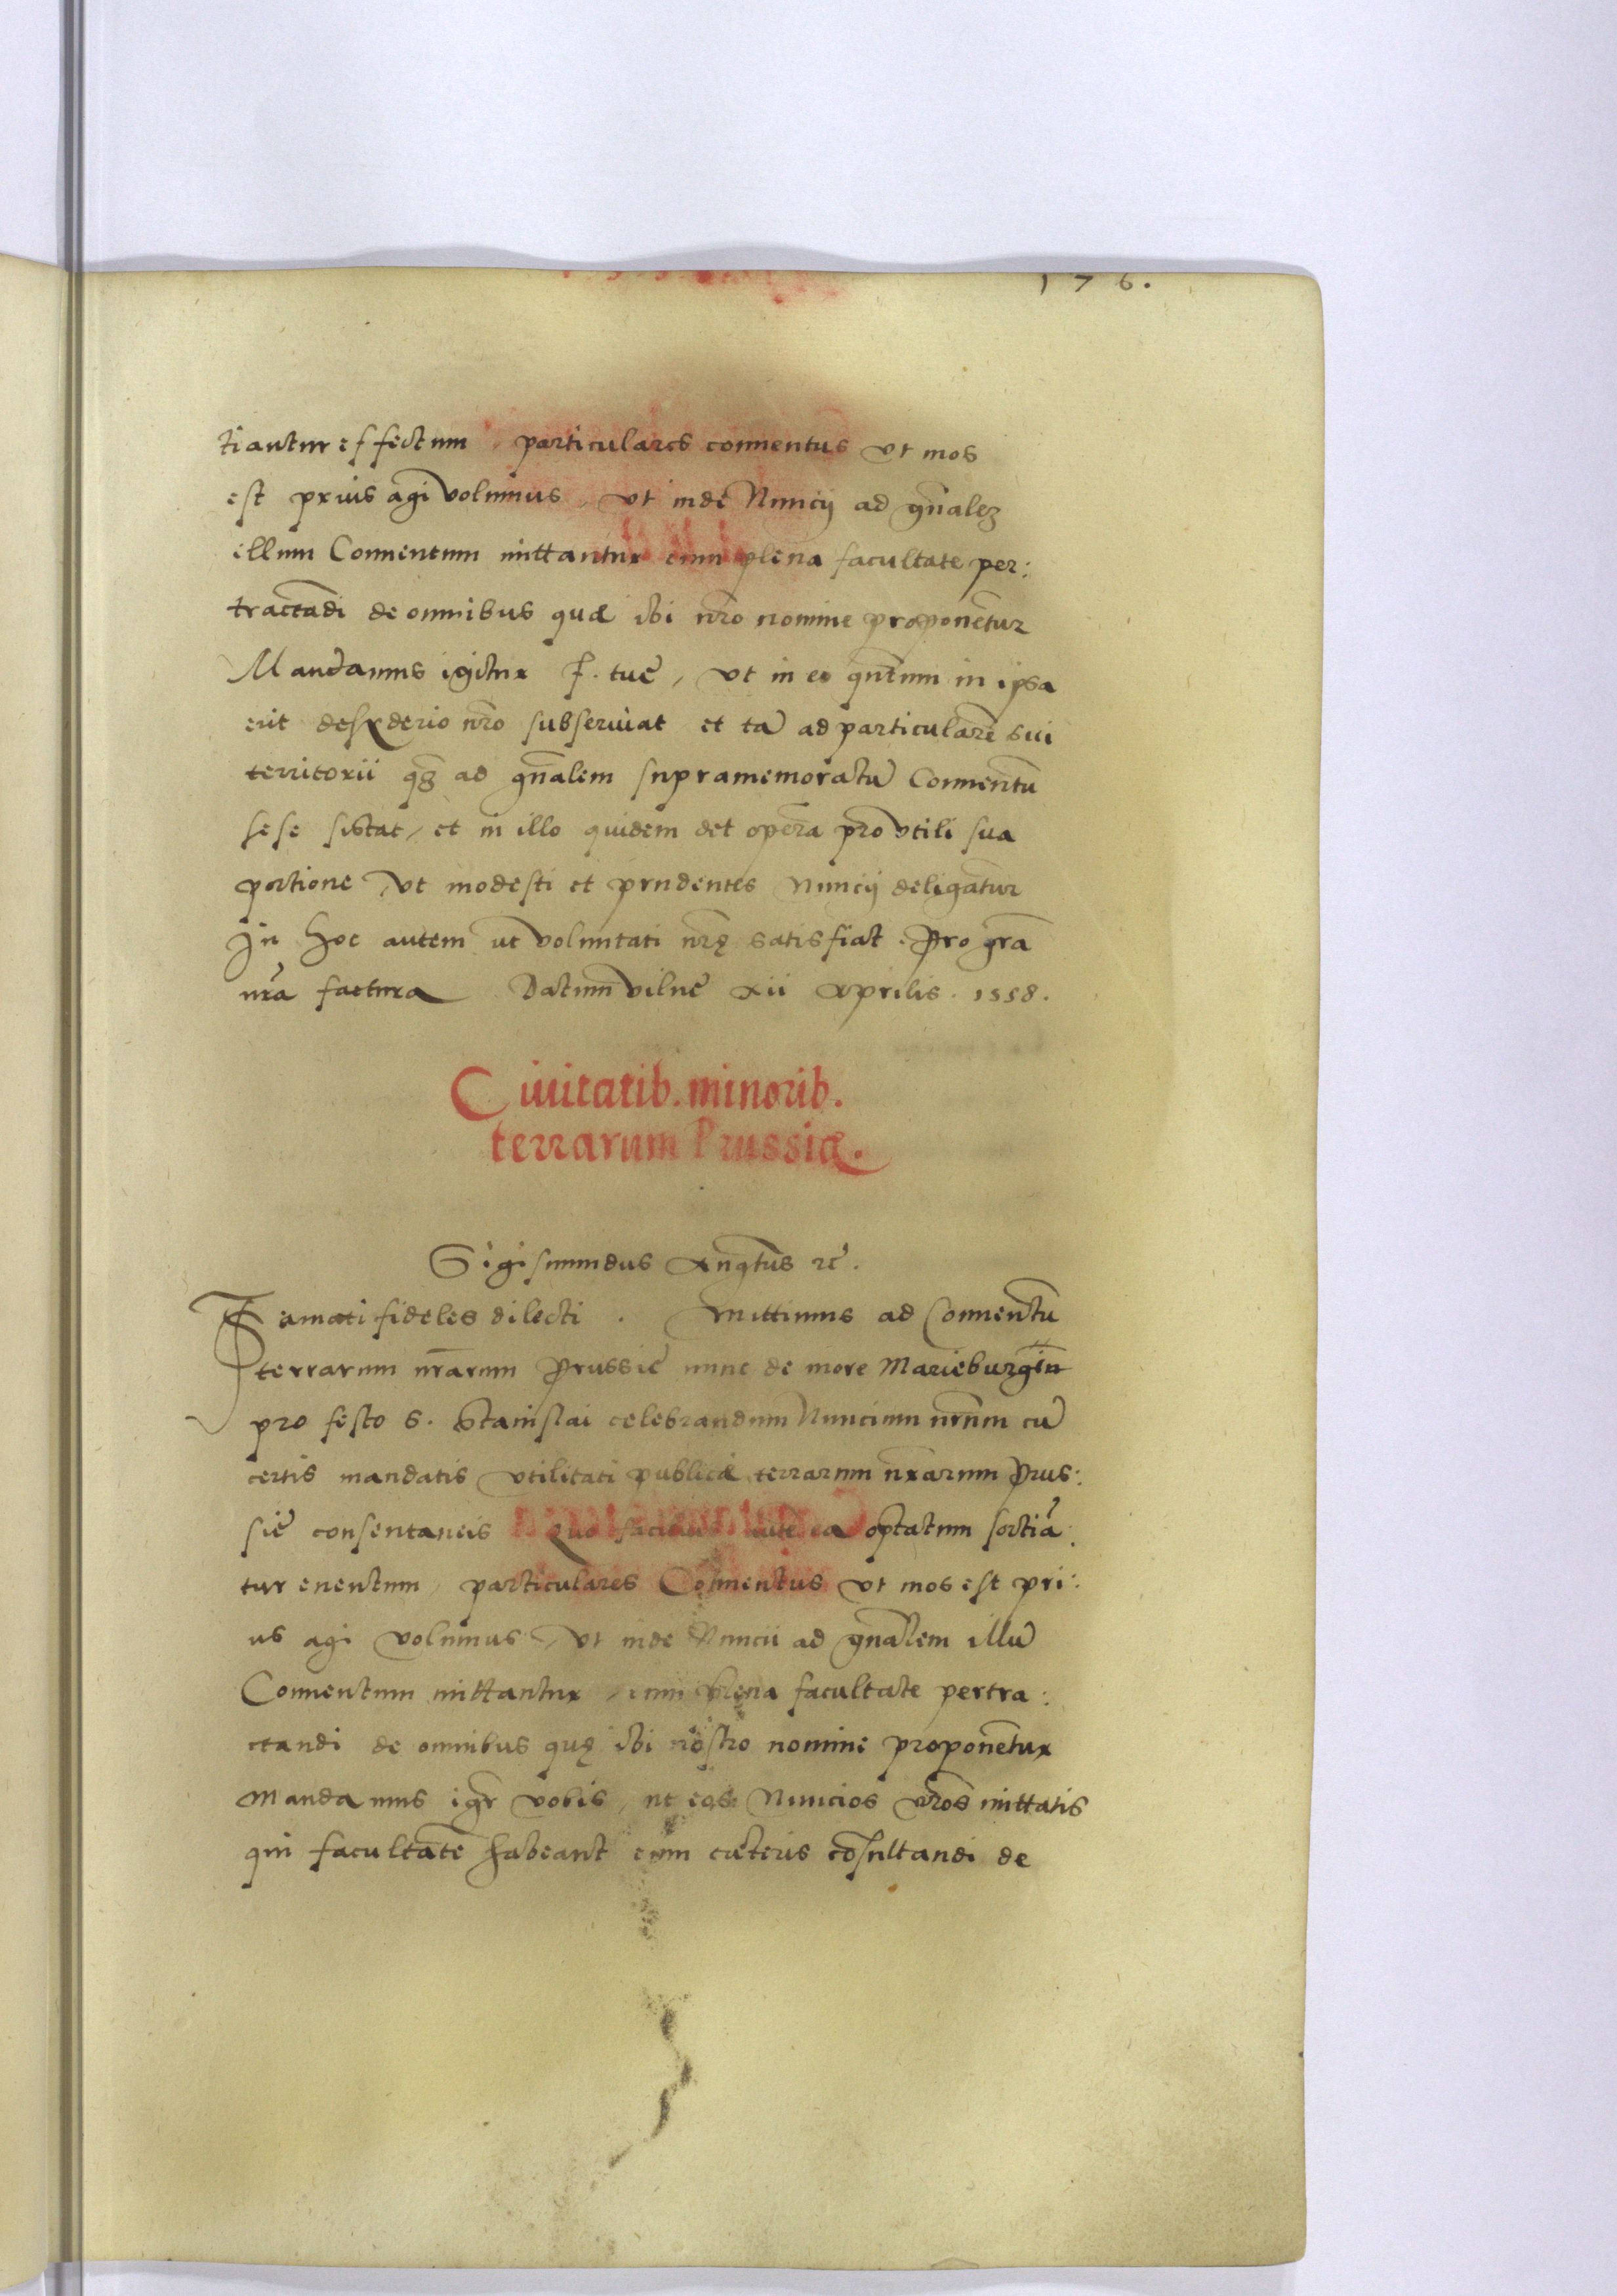 176.
tiantur effectum, particulares conuentus vt mos
est prius agi volumus, vt inde Nuncij ad gn̄alez
illum Conuentum mittantur cum plena facultate per:
tractādi de omnibus quæ ibi nr̄o nomine proponētur
Mandamus igitur F. tuę, vt in eo quātum in ipsa
erit desyderio nr̄o subseruiat et tā ad particularē sui
territorii qz̄ ad gn̄alem supramemoratū Conuentū
sese sistat, et in illo quidem det operā pro vtili sua
portione, vt modesti et prudentes Nuncij deligātur
In hoc autem ut voluntati nr̄ę satisfiat. Pro grā
nr̄a factura Datum Vilnę xii Aprilis. 1558.
Ciuitatib. minorib.
terrarum Prussiæ.
Sigismundus Augtūs rc̄.
Famati fideles dilecti. Mittimus ad Conuentū
terrarum nr̄arum Prussię nunc de more Marieburgēn
pro festo S. Stanislai celebrandum Nuncium nr̄um cū
certis mandatis vtilitati publicæ terrarum nr̄arum Prus:
się consentaneis Quo facilius autē ea optatum sortiā:
tur euentum, particulares Conuentus vt mos est pri:
us agi volumus, vt inde Nuncii ad gn̄alem illū
Conuentum mittantur, cum plena facultate pertra:
ctandi de omnibus quę ibi nostro nomine proponētur
Mandamus igr̄ vobis, ut eos Nuncios vr̄os mittatis
qui facultatē habeant cum cæteris cōsultandi de